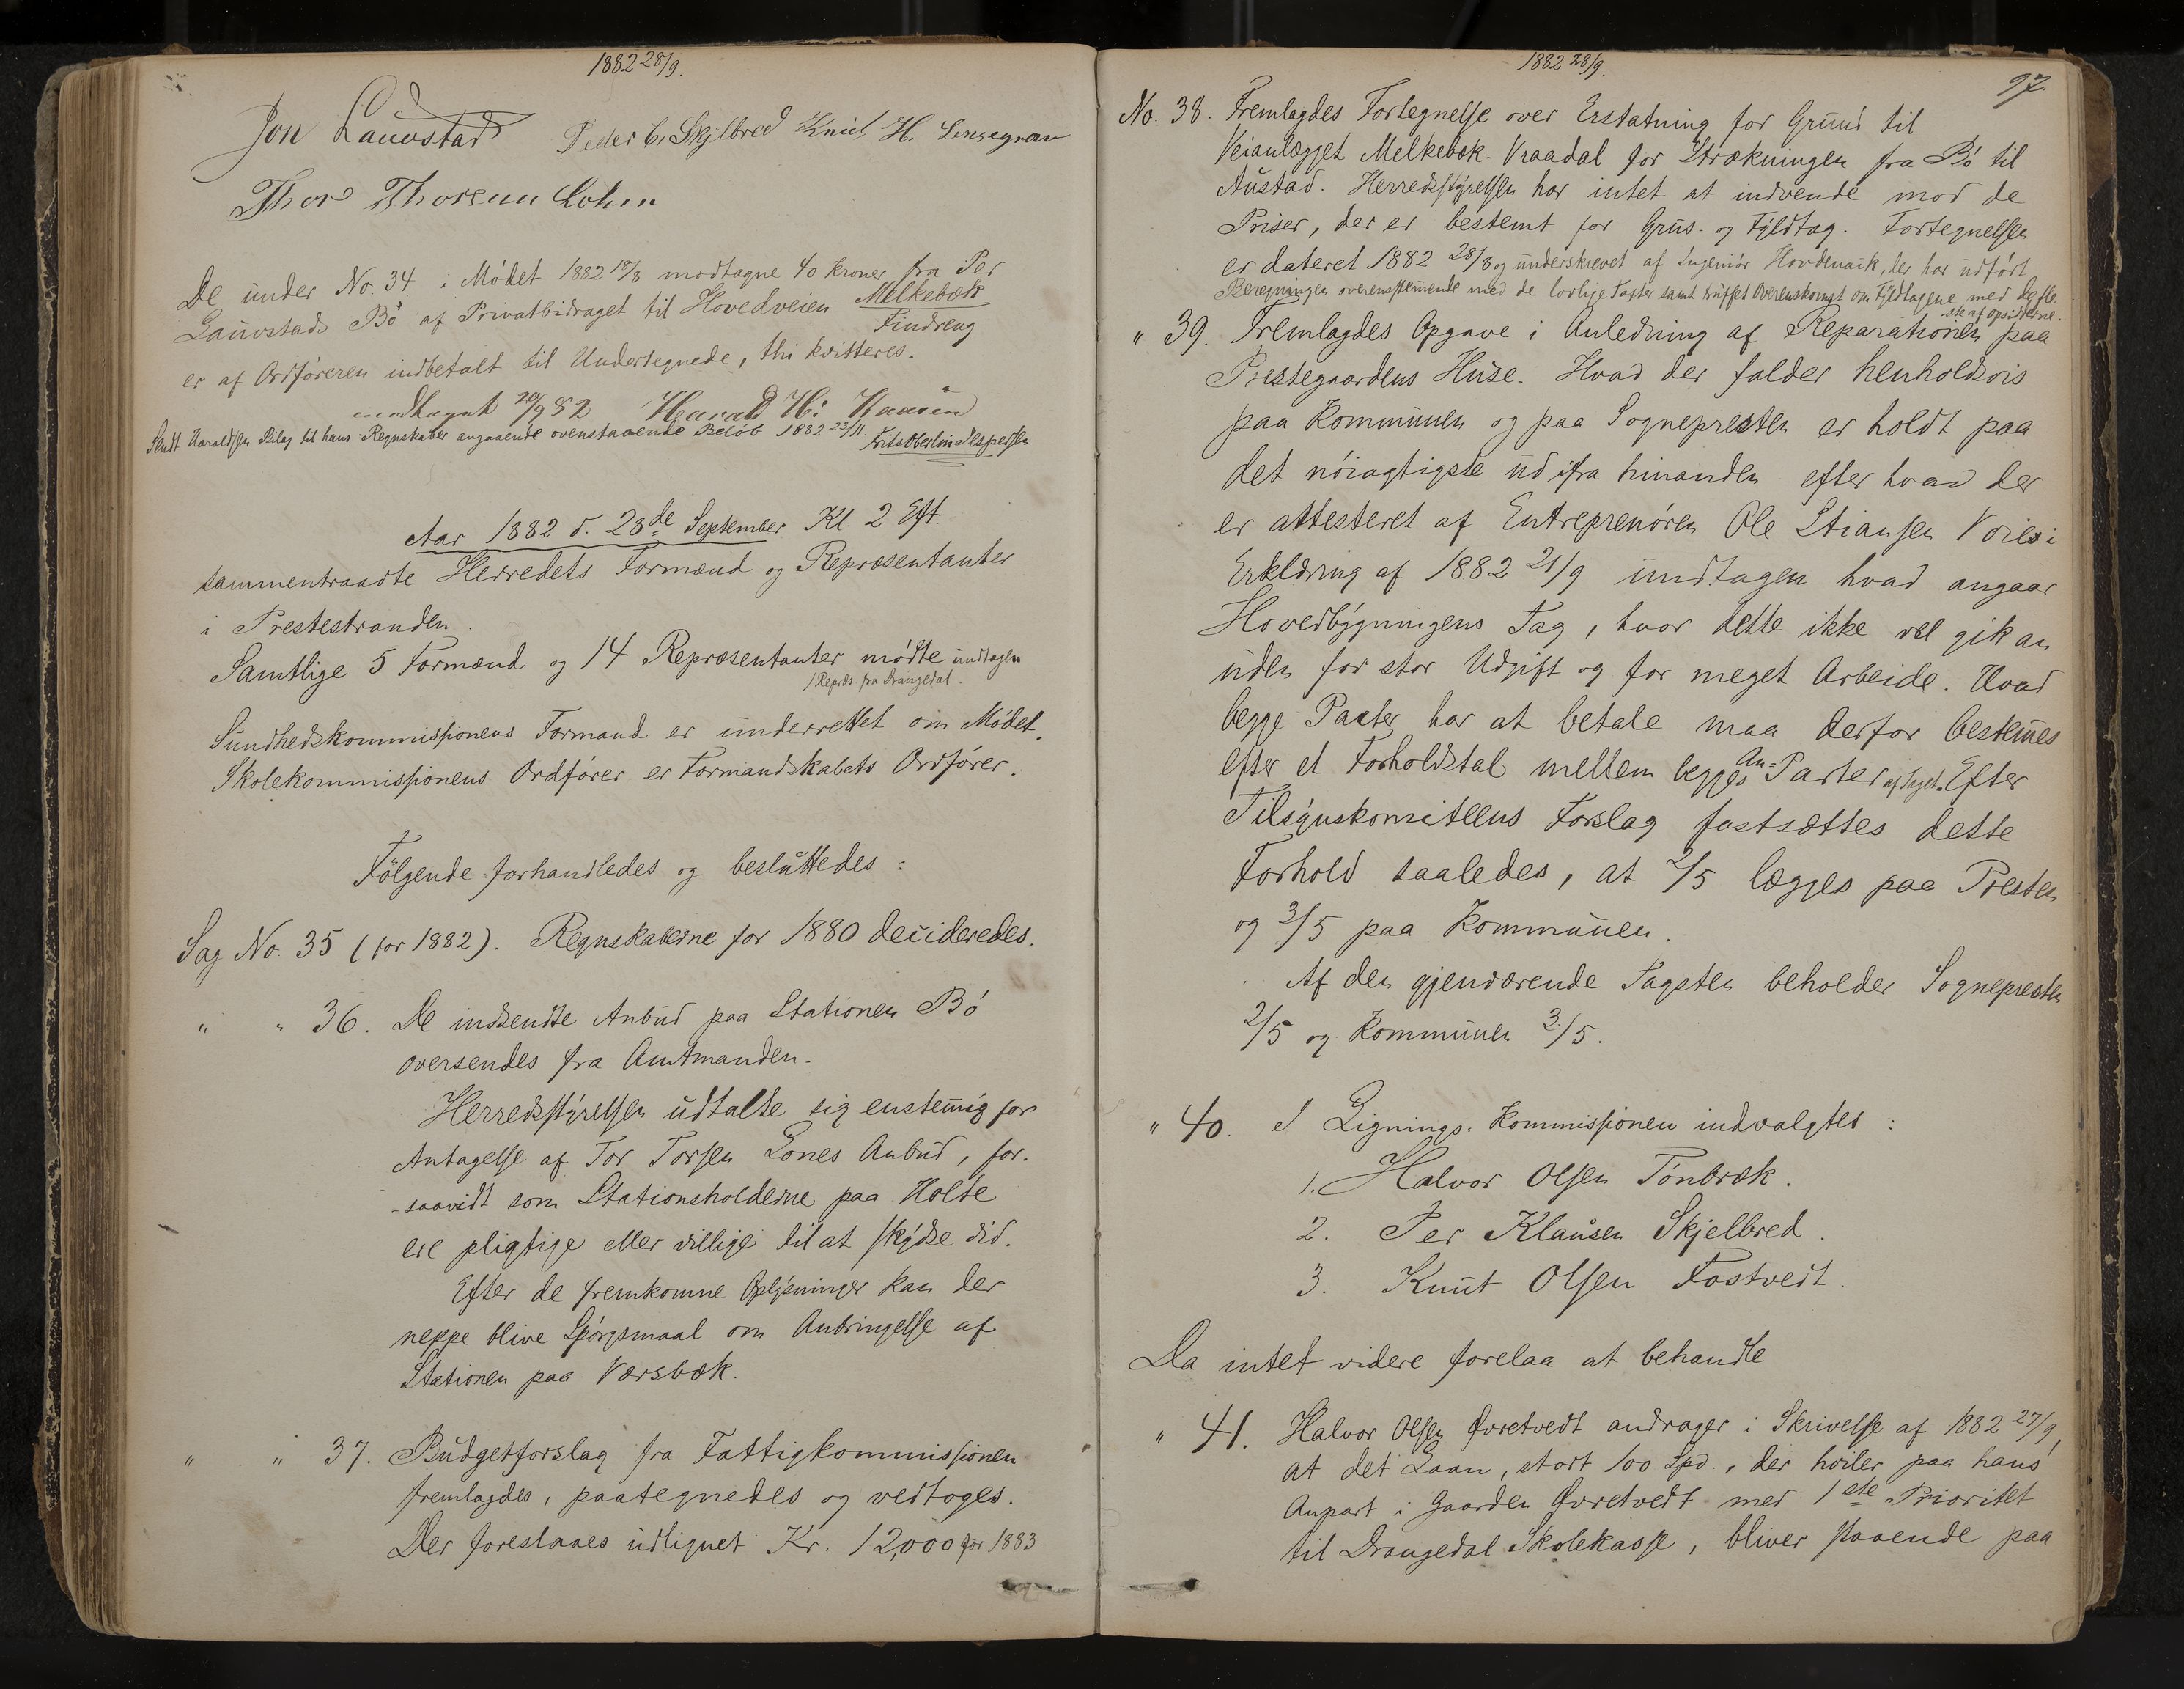 1882 28/9.
Jon Lauvstad Peder C. Skjelbred Knut H.
Thor Thorsen Lohne
De under No. 34 i Mödet 1882 18/8 modtagne 40 Kroner fra Per
Lauvstad Bö af Privatbidraget til Hovedveien Melkebæk
Findreng
er af Ordföreren indbetalt til Undertegnede, thi kvitteres.
modtaget 29/9 82 Harald H.
Sendt Haraldsen Bilag til hans Regnskaber angaaende ovenstaaende Belöb 1882 23/11. Frits Oberlin Jespersen
Aar 1882 d. 28de September Kl. 2 Eft.
sammentraadte Herredets Formænd og Repræsentanter
i Prestestranden.
Samtlige 5 Formænd og 14 Repræsentanter mödte undtagen
1 Repræs fra Drangedal.
Sundhedskommissionens Formand er underrettet om Mödet.
Skolekommissionens Ordförer er Formandskabets Ordförer.
Fölgende forhandledes og besluttedes:
Sag No. 35 (for 1882). Regnskaberne for 1880 decideredes.
" " 36. De indsendte Anbud paa Stationen Bö
oversendes fra Amtmanden.
Herredsstyrelsen udtalte sig enstemmig for
Antagelse af Tor Torsen Lones Anbud, for-
-saavidt som Stationsholderne paa Holte
ere pligtige eller villige til at skydse did.
Efter de fremkomne Oplysninger kan der
neppe blive Spörgsmaal om Anbringelse af
Stationen paa Værsbæk.
" " 37. Budgetforslag fra Fattigkommissionen
fremlagdes, paategnedes og vedtoges.
Der foreslaaes udlignet Kr. 12,000 for 1883.
1882 28/9.
97.
No. 38. Fremlagdes Fortegnelse over Erstatning for Grund til
Veianlægget Melkebæk-Vraadal for Strækningen fra Bö til
Austad. Herredsstyrelsen har intet at indvende mod de
Priser, der er bestemt for Grus- og Fyldtag. Fortegnelsen
er dateret 1882 28/8 og underskrevet af Ingeniör Hovdenak, der har udfört
Beregningen overensstemmende med de lovlige Taxter samt truffet Overenskomst om Fyldtagene med de fle-
-ste af Opsidderne.
" 39. Fremlagdes Opgave i Anledning af Reparationen paa
Prestegaardens Huse. Hvad der falder henholdsvis
paa Kommunen og paa Sognepresten er holdt paa
det nöiagtigste ud ifra hinanden efter hvad der
er attesteret af Entreprenören Ole Stiansen Voie i
Erklæring af 1882 21/9 undtagen hvad angaar
Hovedbygningens Tag, hvor dette ikke vel gik an
uden for stor Udgift og for meget Arbeide. Hvad
begge Parter har at betale maa derfor bestemmes
efter et Forholdstal mellem begges An-Parter af Taget. Efter
Tilsynskomiteens Forslag fastsættes dette
Forhold saaledes, at 2/5 lægges paa Presten
og 3/5 paa Kommunen.
Af den gjenværende Tagsten beholder Sognepresten
2/5 og Kommunen 3/5.
" 40. I Lignings-Kommissionen indvalgtes:
1. Halvor Olsen Tönbræk.
2. Per Klausen Skjelbred.
3. Knut Olsen Fostvedt.
Da intet videre forelaa at behandle
" 41. Halvor Olsen Øvretvedt andrager i Skrivelse af 1882 27/9,
at det Laan, stort 100 Spd., der hviler paa hans
Anpart i Gaarden Øvretvedt med 1ste Prioritet
til Drangedal Skolekasse, bliver staaende paa